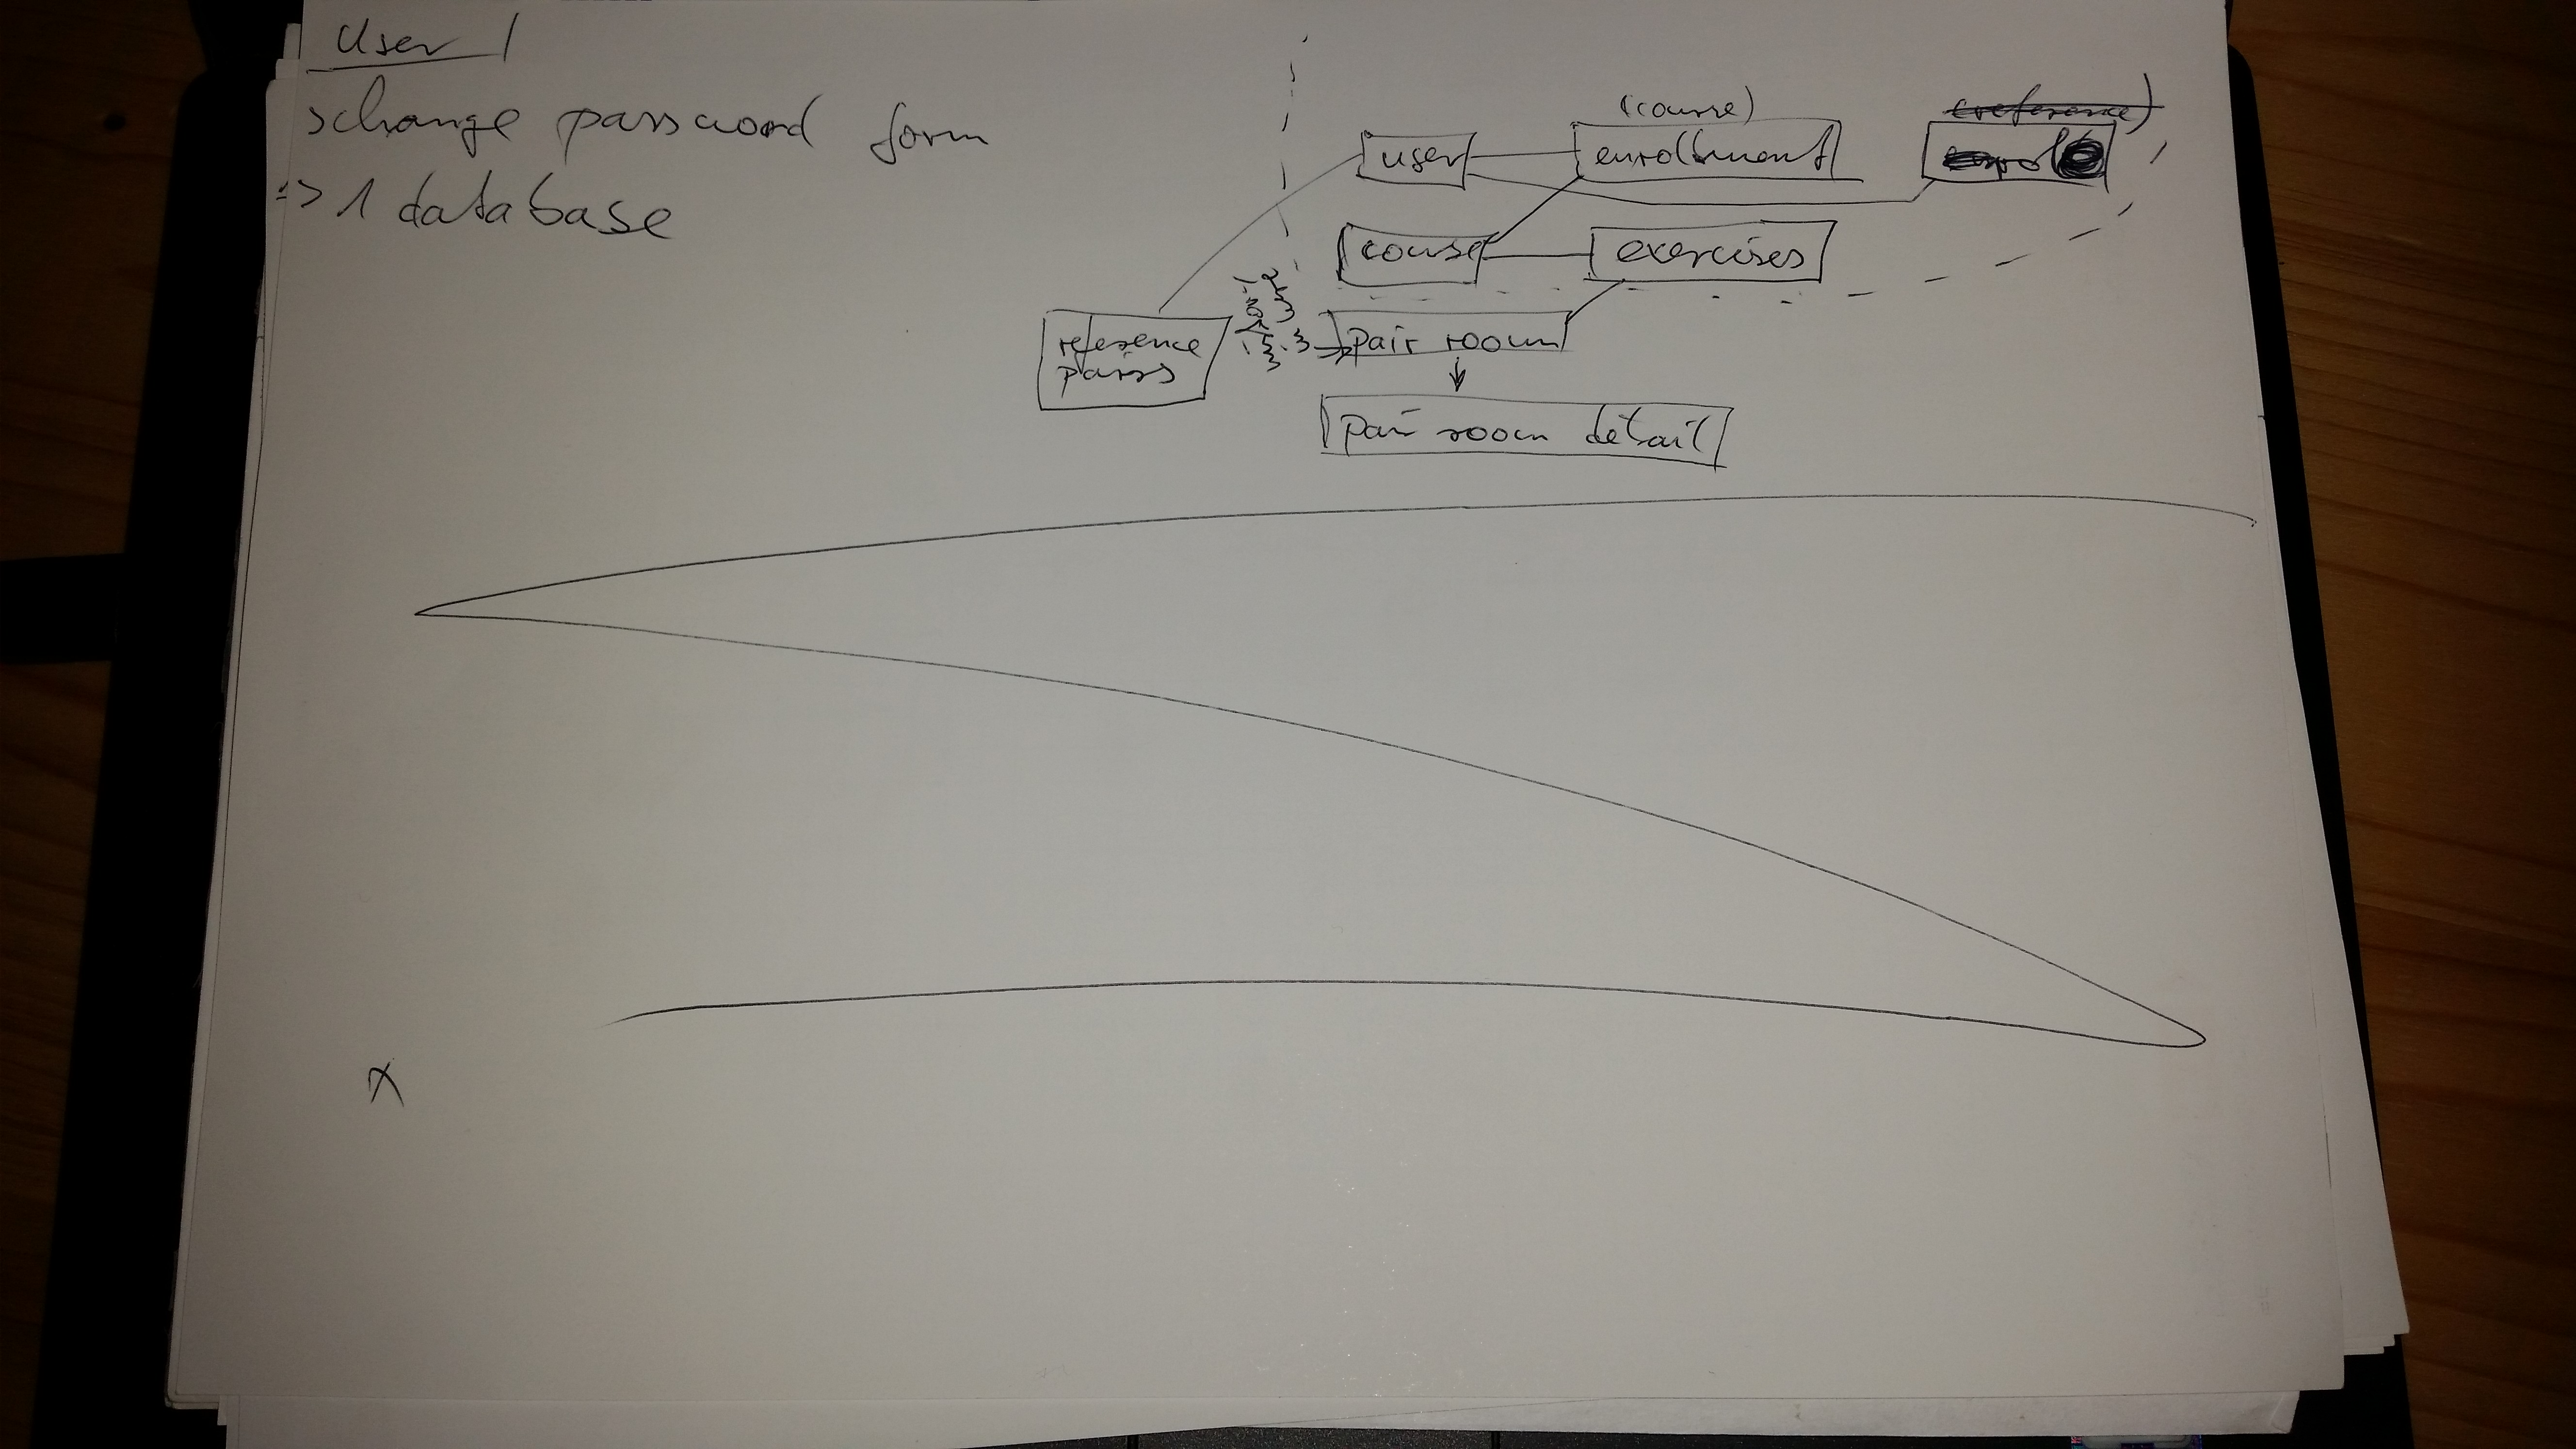 User
change password form
=> 1 database
(course)
(reference)
user
enrollment
course
exercises
reference
pairs
pair room
pair room detail
x